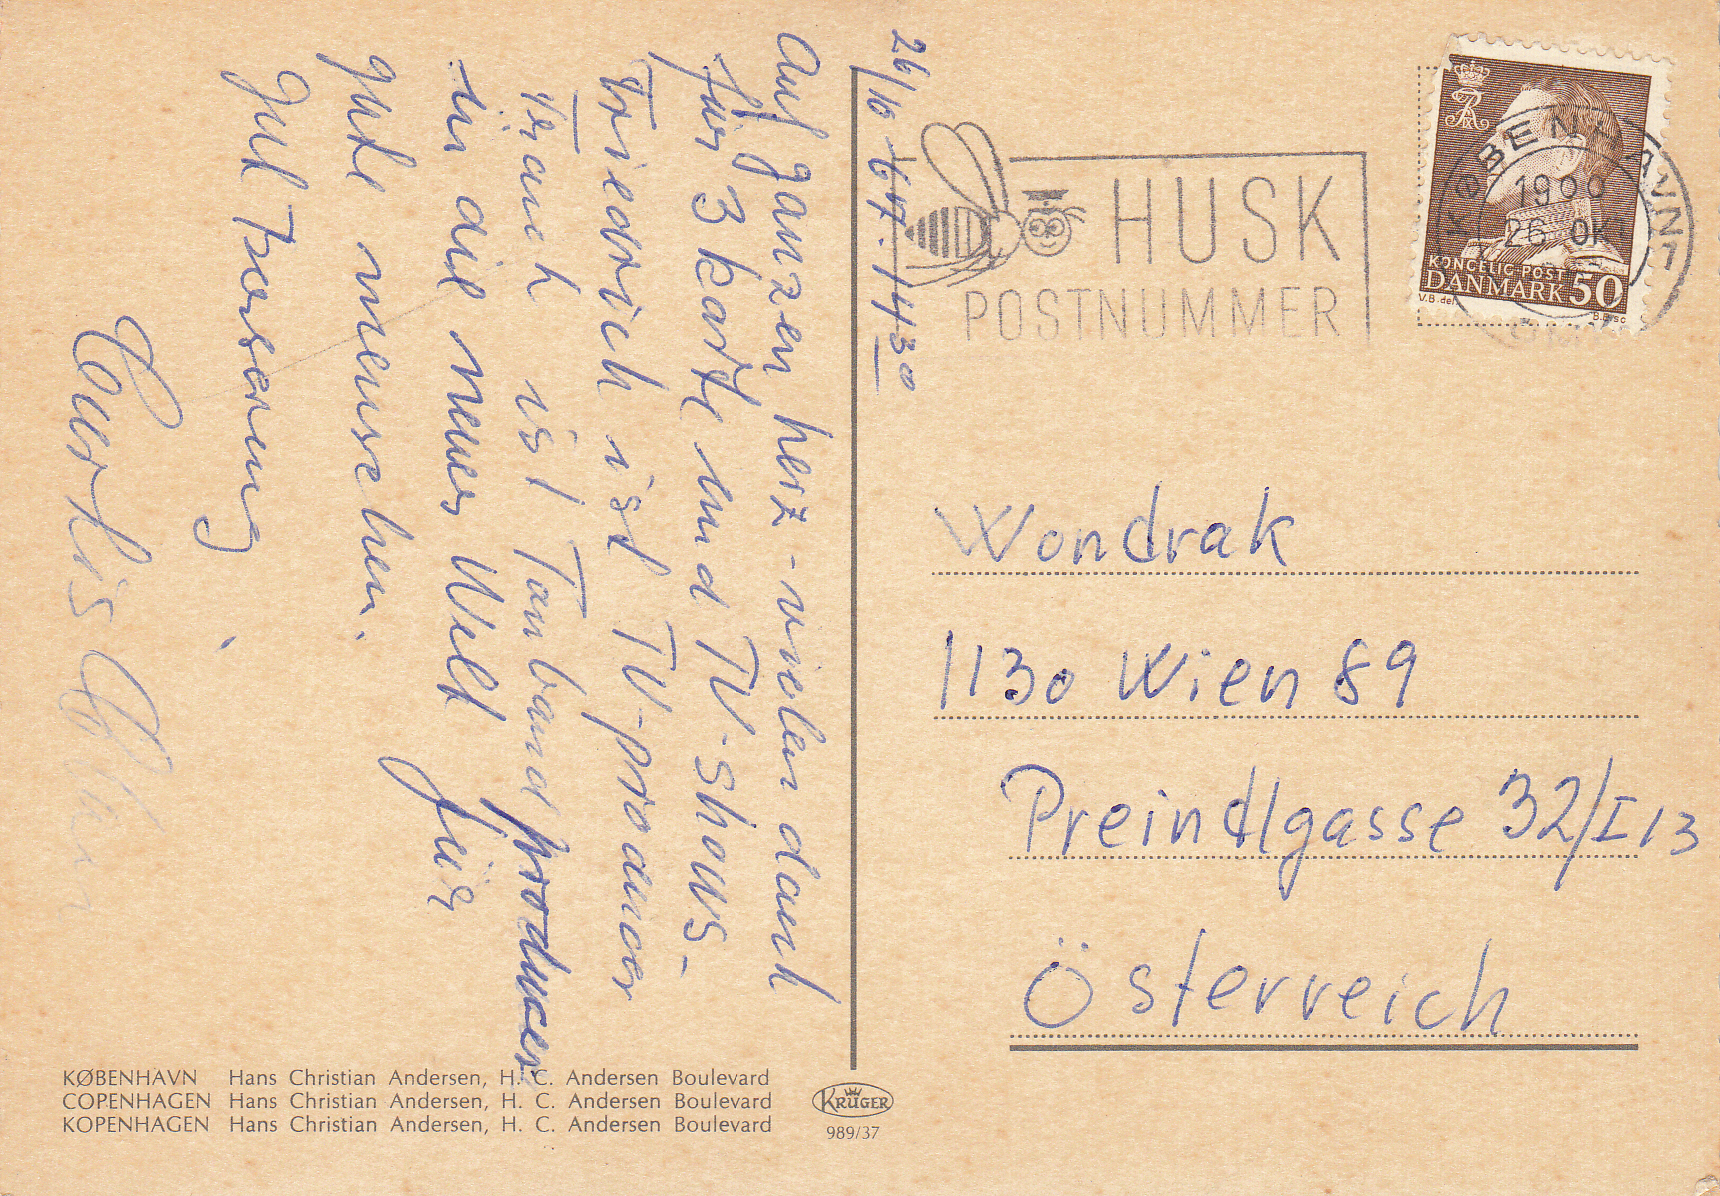 26/10 67. 1430
Auf ganzen herz - vielen dank
für 3 karte und TV-shows -
Friedrich ist TV-producer
Frank ist Tonband producer
in die neues Welt für
gute menschen.
Gut Besserung
HUSK
POSTNUMMER
KØBENHAVN 1
1900
26. OKT
KONGELIG POST
DANMARK 50
V.B. del
Wondrak
1130 Wien 89
Preindlgasse 32/I/3
Österreich
KØBENHAVN Hans Christian Andersen, H. C. Andersen Boulevard
COPENHAGEN Hans Christian Andersen, H. C. Andersen Boulevard
KOPENHAGEN Hans Christian Andersen, H. C. Andersen Boulevard
KRÜGER
989/37